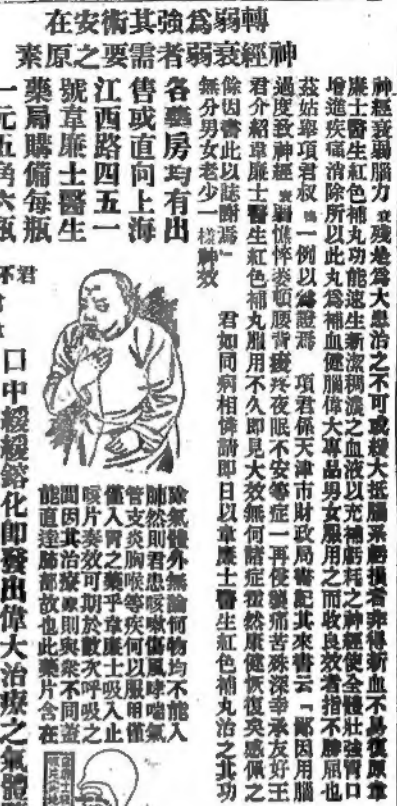 轉弱爲強其術安在
神經衰弱者需要之原素
神經衰弱腦力衰殘是爲大患治之不可或緩大抵腦系虧損者非得新血不易復原韋
廉士醫生紅色補丸功能速生新潔稠濃之血液以充補虧耗之神經使全體壯強胃口
增進疾痛消除所以此丸爲補血健腦偉大專品男女服用之而收良效者指不勝屈也
茲姑舉項君叔鳴一例以爲證焉 項君係天津市財政局書記其來書云「鄙因用腦
過度致神經衰弱憔悴萎頓腰背痠疼夜眠不安等症一再侵襲痛苦殊深幸承友好王
君介紹韋廉士醫生紅色補丸服用不久即見大效無何諸症霍然康健恢復矣感佩之
餘因書此以誌謝焉」 君如同病相憐請即日以韋廉士醫生紅色補丸治之其功
無分男女老少一樣神效
各藥房均有出
售或直向上海
江西路四五一
號韋廉士醫生
藥局購備每瓶
一元五角六瓶
除氣體外無論何物均不能入
肺然則君患咳嗽傷風哮喘氣
管支炎胸喉等疾何以服用僅
僅入胃之藥乎韋廉士吸入止
咳片奏效可期於數次呼吸之
間因其治療原則與衆不同蓋
能直達肺部故也此藥片含在
口中緩緩鎔化即發出偉大治療之氣體
君
不